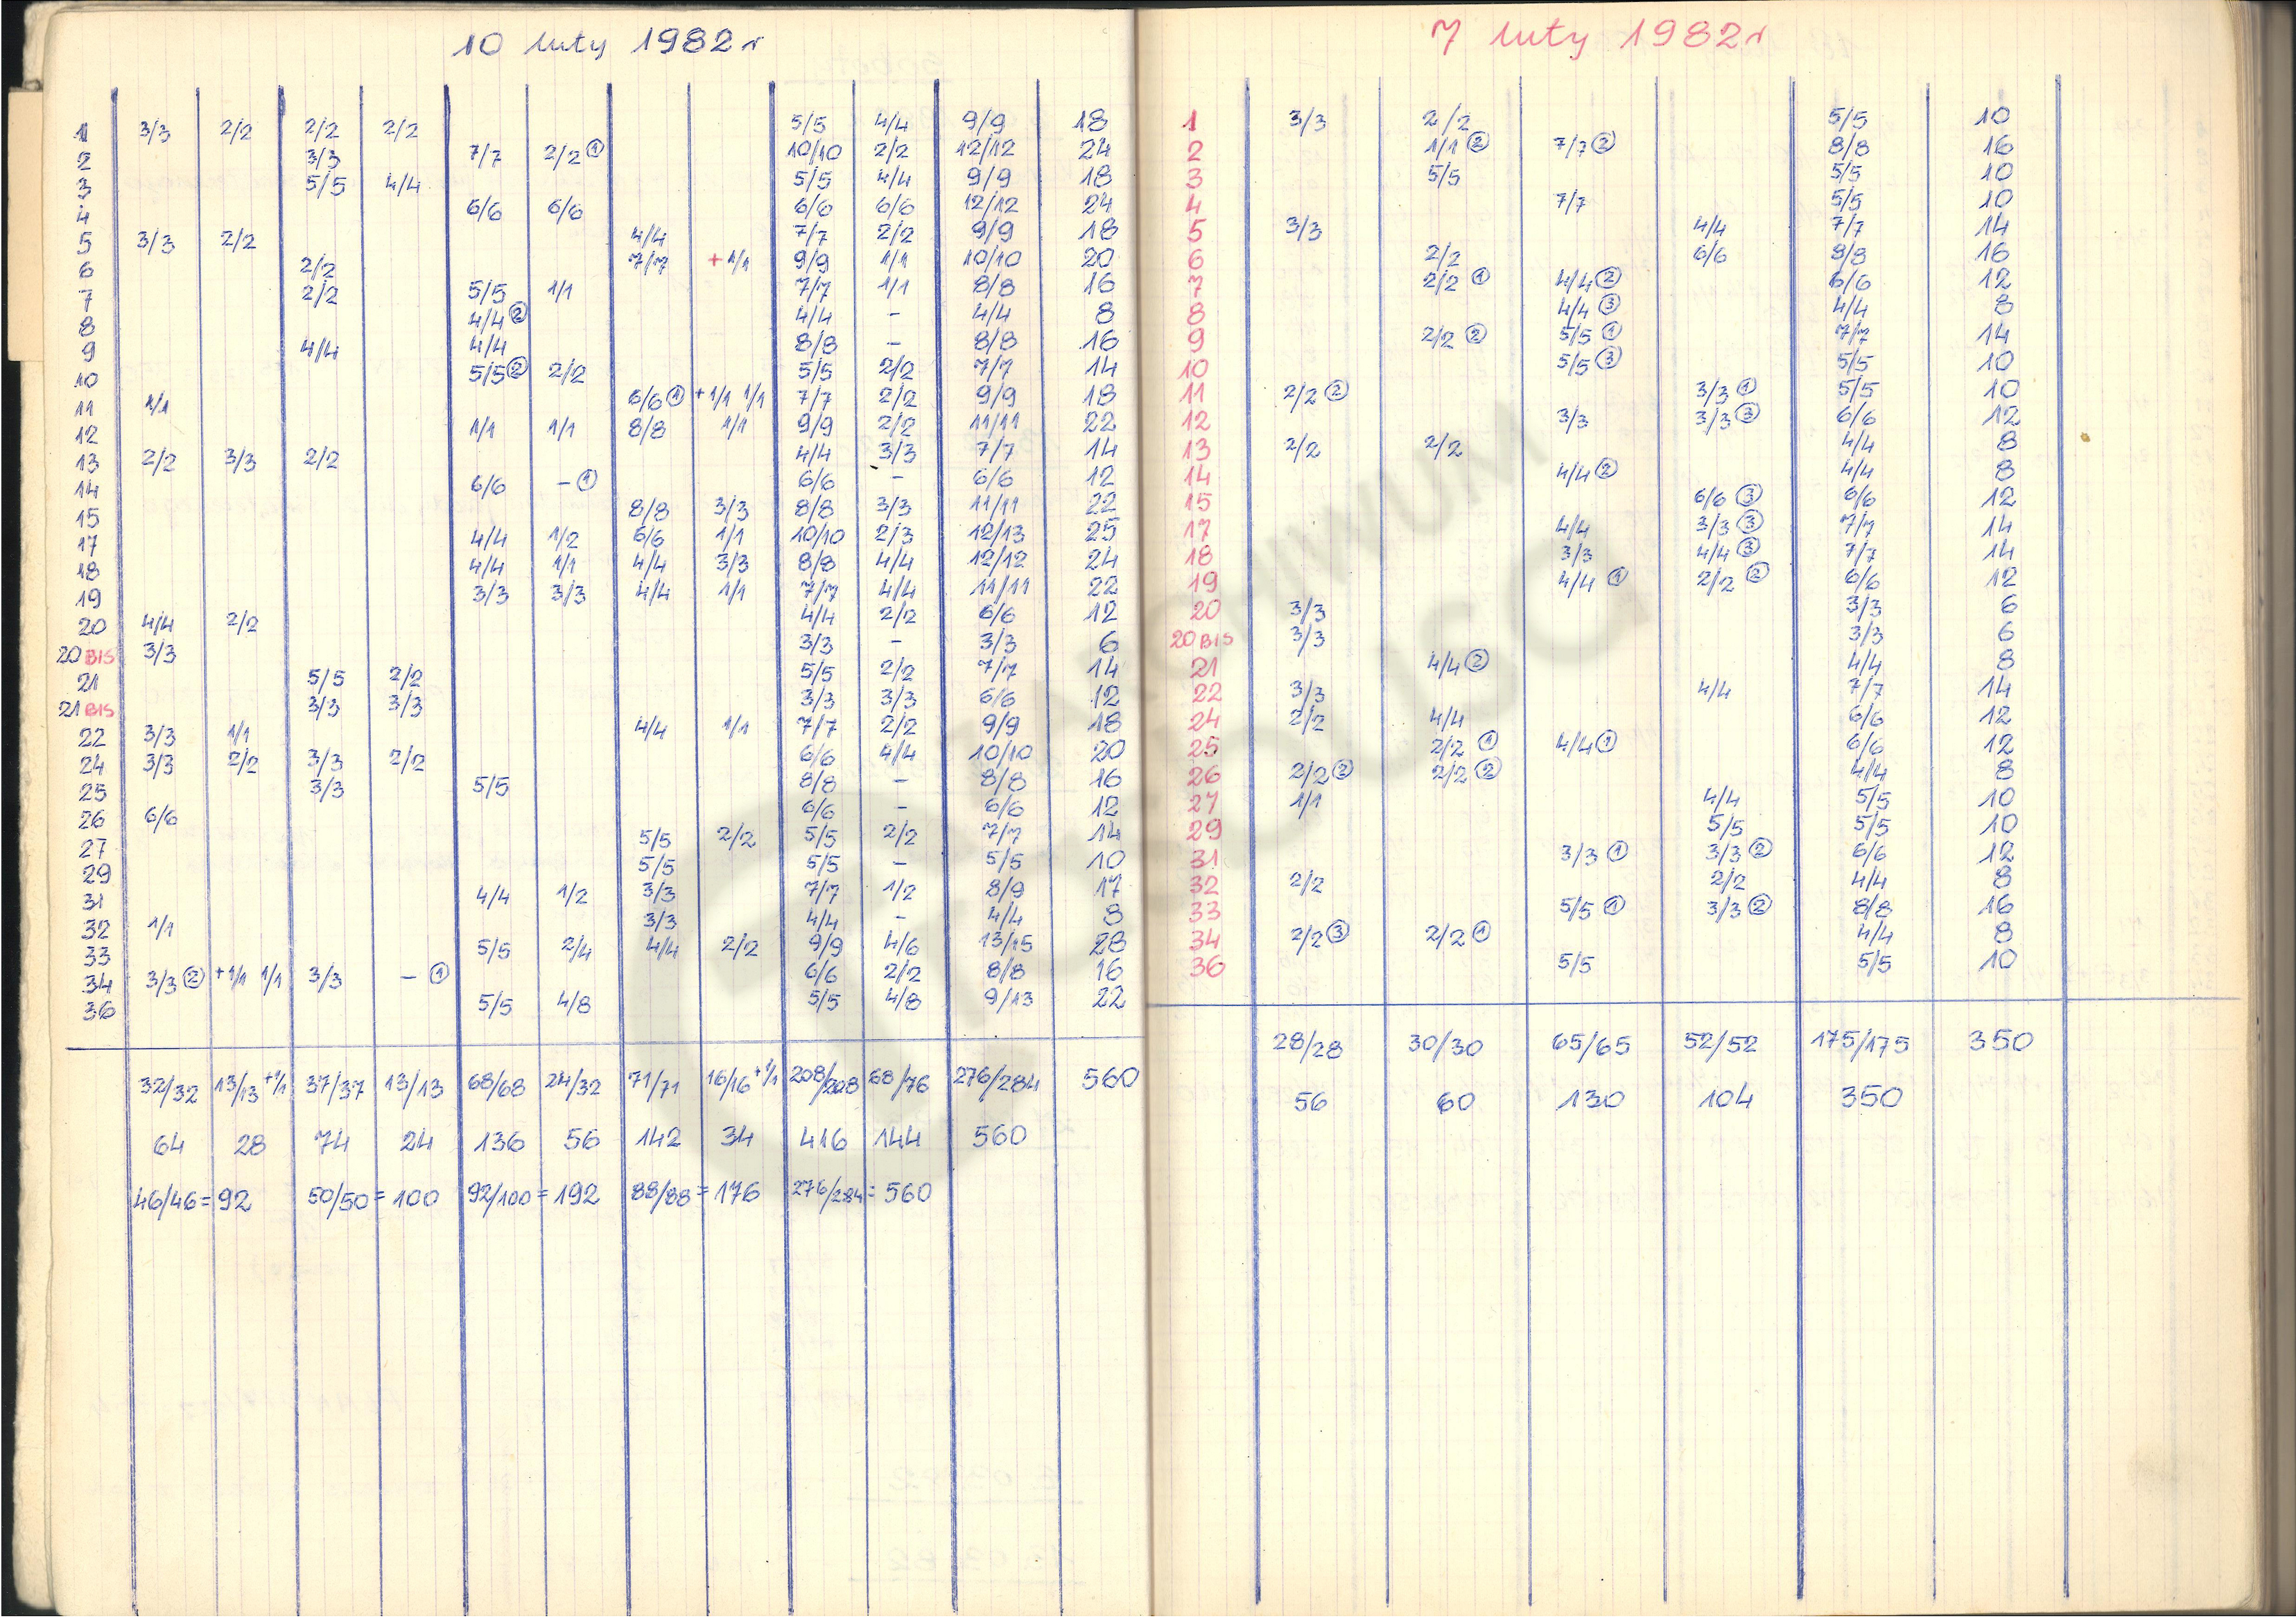 10 luty 1982r
1 3/3 2/2 2/2 2/2 5/5 4/4 9/9 18
2 3/3 7/7 2/2 ① 10/10 2/2 12/12 24
3 5/5 4/4 5/5 4/4 9/9 18
4 6/6 6/6 6/6 6/6 12/12 24
5 3/3 2/2 4/4 7/7 2/2 9/9 18
6 2/2 7/7 +1/1 9/9 1/1 10/10 20
7 2/2 5/5 1/1 7/7 1/1 8/8 16
8 4/4 ② 4/4 - 4/4 8
9 4/4 4/4 8/8 - 8/8 16
10 5/5 ② 2/2 5/5 2/2 7/7 14
11 1/1 6/6 ① +1/1 1/1 7/7 2/2 9/9 18
12 1/1 1/1 8/8 1/1 9/9 2/2 11/11 22
13 2/2 3/3 2/2 4/4 3/3 7/7 14
14 6/6 - ① 6/6 - 6/6 12
15 8/8 3/3 8/8 3/3 11/11 22
17 4/4 1/2 6/6 1/1 10/10 2/3 12/13 25
18 4/4 1/1 4/4 3/3 8/8 4/4 12/12 24
19 3/3 3/3 4/4 1/1 7/7 4/4 11/11 22
20 4/4 2/2 4/4 2/2 6/6 12
20 BIS 3/3 3/3 - 3/3 6
21 5/5 2/2 5/5 2/2 7/7 14
21 BIS 3/3 3/3 3/3 3/3 6/6 12
22 3/3 1/1 4/4 1/1 7/7 2/2 9/9 18
24 3/3 2/2 3/3 2/2 6/6 4/4 10/10 20
25 3/3 5/5 8/8 - 8/8 16
26 6/6 6/6 - 6/6 12
27 5/5 2/2 5/5 2/2 7/7 14
29 5/5 5/5 - 5/5 10
31 4/4 1/2 3/3 7/7 1/2 8/9 17
32 1/1 3/3 4/4 - 4/4 8
33 5/5 2/4 4/4 2/2 9/9 4/6 13/15 28
34 3/3 ② +1/1 1/1 3/3 - ① 6/6 2/2 8/8 16
36 5/5 4/8 5/5 4/8 9/13 22
32/32 13/13 +1/1 37/37 13/13 68/68 24/32 71/71 16/16 +1/1 208/208 68/76 276/284 560
64 28 74 24 136 56 142 34 416 144 560
46/46 = 92 50/50 = 100 92/100 = 192 88/88 = 176 276/284 = 560
7 luty 1982r
1 3/3 2/2 5/5 10
2 1/1 ② 7/7 ② 8/8 16
3 5/5 5/5 10
4 7/7 5/5 10
5 3/3 4/4 7/7 14
6 2/2 6/6 8/8 16
7 2/2 ① 4/4 ② 6/6 12
8 4/4 ③ 4/4 8
9 2/2 ② 5/5 ① 7/7 14
10 5/5 ③ 5/5 10
11 2/2 ② 3/3 ① 5/5 10
12 3/3 3/3 ③ 6/6 12
13 2/2 2/2 4/4 8
14 4/4 ② 4/4 8
15 6/6 ③ 6/6 12
17 4/4 3/3 ③ 7/7 14
18 3/3 4/4 ③ 7/7 14
19 4/4 ① 2/2 ② 6/6 12
20 3/3 3/3 6
20 BIS 3/3 3/3 6
21 4/4 ② 4/4 8
22 3/3 4/4 7/7 14
24 2/2 4/4 6/6 12
25 2/2 ① 4/4 ① 6/6 12
26 2/2 ② 2/2 ② 4/4 8
27 1/1 4/4 5/5 10
29 5/5 5/5 10
31 3/3 ① 3/3 ② 6/6 12
32 2/2 2/2 4/4 8
33 5/5 ① 3/3 ② 8/8 16
34 2/2 ③ 2/2 ① 4/4 8
36 5/5 5/5 10
28/28 30/30 65/65 52/52 175/175 350
56 60 130 104 350